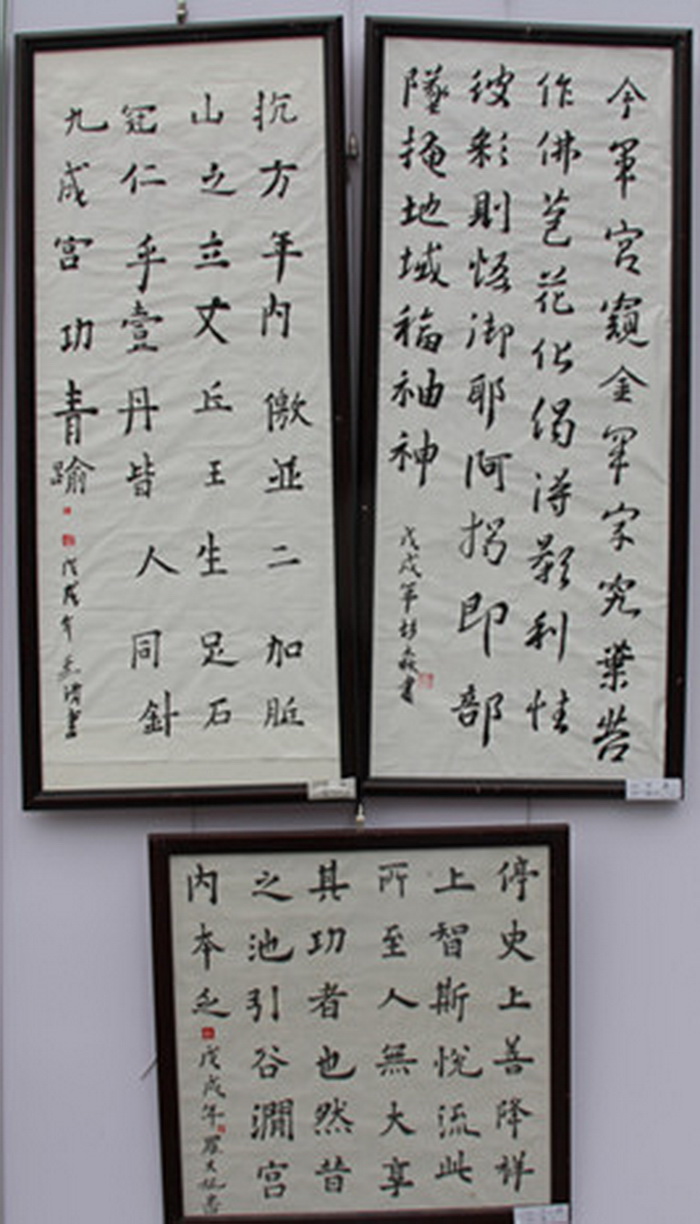 抗方年内儌並二加脡
山之立丈丘王生足石
冠仁乎壹丹皆人同針
九成宮功青踰
戊戌年書
今軍宮窺金軍字究葉营
作佛芭花化偈淂影利性
彼彩則悟御耶阿拐即部
墜掩地域福袖神
戊戌年書
停史上善降祥
上智斯悅流此
所至人無大享
其功者也然昔
之池引谷澗宮
内本乏
戊戌年羅大書